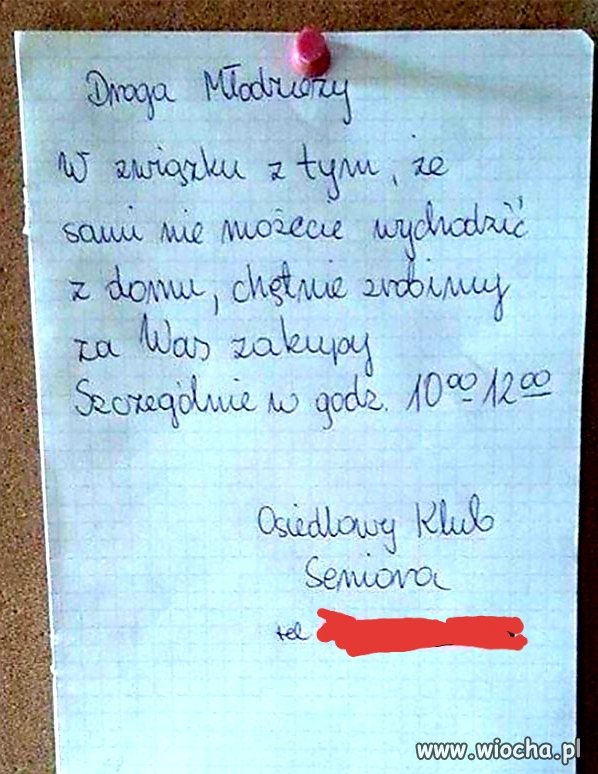 Droga Młodzieży
W związku z tym, że
sami nie możecie wychodzić
z domu, chętnie zrobimy
za Was zakupy
Szczególnie w godz. 10⁰⁰ 12⁰⁰
Osiedlowy Klub
Seniora
tel
www.wiocha.pl